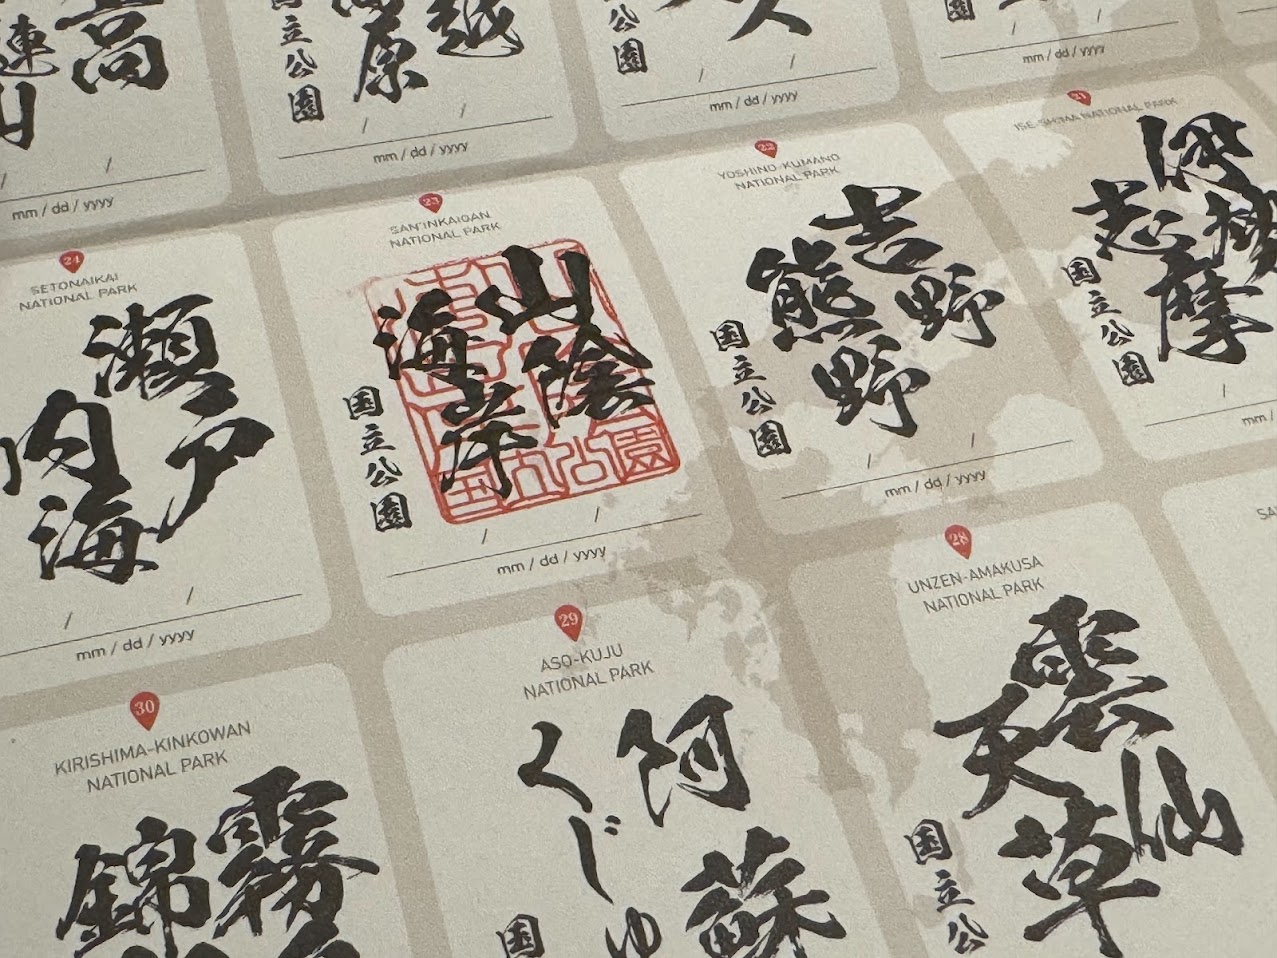 連
高
mm / dd / yyyy
原
越
立公園
mm / dd / yyyy
公園
mm / dd / yyyy
園
mm / dd / yyyy
24
SETONAIKAI
NATIONAL PARK
瀬戸
内海
mm / dd / yyyy
23
SAN'INKAIGAN
NATIONAL PARK
山陰
海岸
国立公園
mm / dd / yyyy
22
YOSHINO-KUMANO
NATIONAL PARK
吉野
熊野
国立公園
mm / dd / yyyy
21
ISE-SHIMA NATIONAL PARK
伊勢
志摩
国立公園
mm /
30
KIRISHIMA-KINKOWAN
NATIONAL PARK
霧
錦
29
ASO-KUJU
NATIONAL PARK
阿蘇
くじゅ
国
28
UNZEN-AMAKUSA
NATIONAL PARK
雲仙
天草
国立公
SA